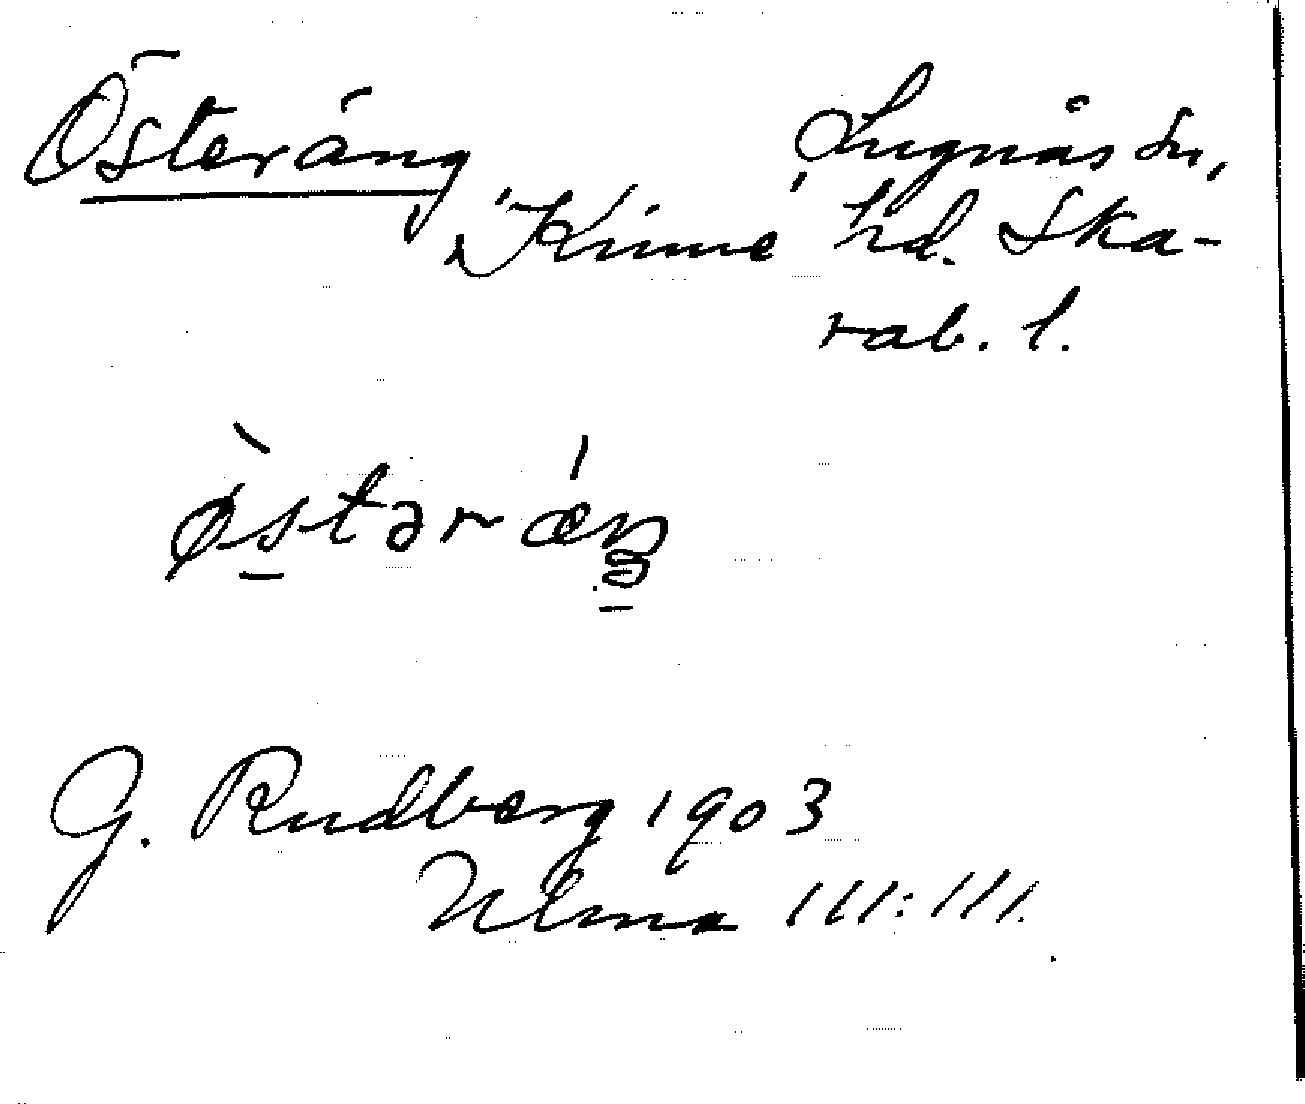 Österäng Lugnås sn,
Kinne hd. Ska-
rab. l.
ø̀stərǽŋ
G. Rudberg 1903
Ulma 111:111.